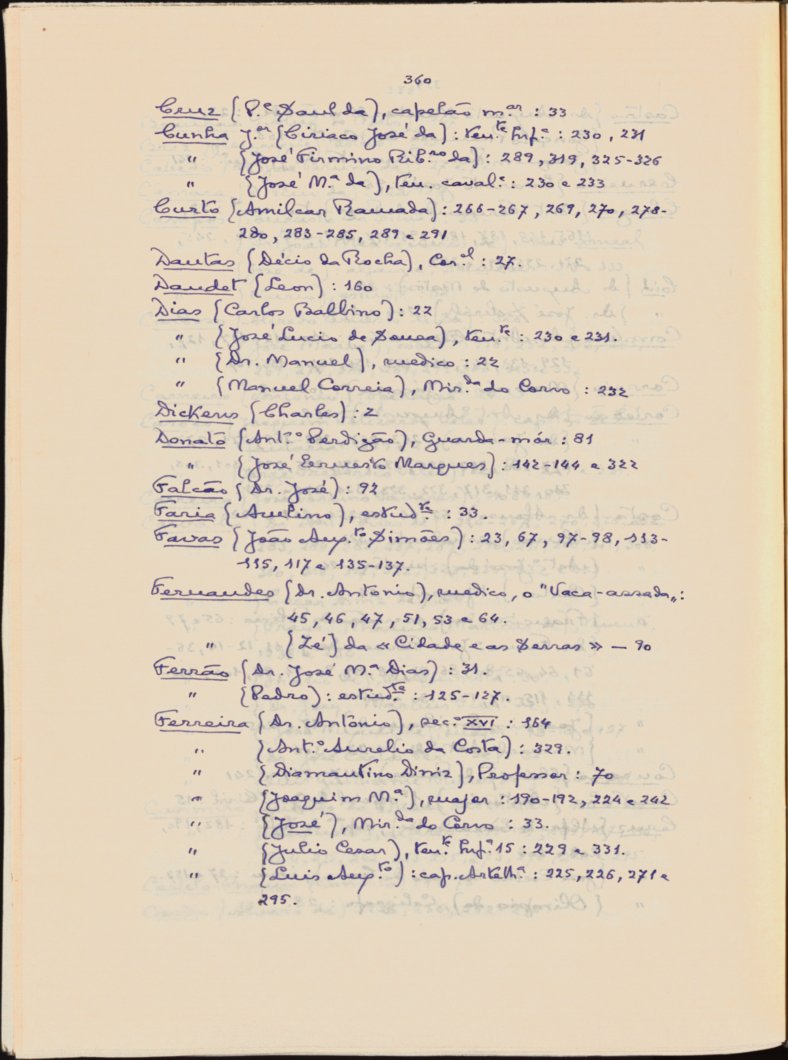 360
Cruz (P.e Saul da), capelão m.ar : 33
Cunha J.or (Ciriaco José da) : ten.te Inf.a : 230, 231
" (José Firmino Rib.ro da) : 289, 319, 325-326
" (José M.a da), ten. caval.a : 230 e 233
Curto (Amilcar Ramada) : 266-267, 269, 270, 278-
280, 283-285, 289 e 291
Dantas (Décio da Rocha), Cor.el : 27.
Daudet (Leon) : 160
Dias (Carlos Balbino) : 22
" (José Lucio de Sousa), ten.te : 230 e 231.
" (Dr. Manuel), medico : 22
" (Manuel Correia), Mir.da do Corvo : 232
Dickens (Charles) : 2
Donato (Ant.o Perdigão), Guarda-mór : 81
" (José Ernesto Marques) : 142-144 e 322
Falcão (Dr. José) : 92
Faria (Avelino), estud.te : 33.
Favas (João Aug.to Simões) : 23, 67, 97-98, 113-
115, 117 e 135-137.
Fernandes (Dr. Antonio), medico, o "Vaca-assada„ :
45, 46, 47, 51, 53 e 64.
" (Zé) da «Cidade e as Serras» — 90
Ferrão (Dr. José M.a Dias) : 31.
" (Pedro) : estud.te : 125-127.
Ferreira (Dr. António), sec.o XVI : 164
" (Ant.o Aurelio da Costa) : 329.
" (Diamantino Diniz), Professor : 70
" (Joaquim M.a), major : 190-192, 224 e 242
" (José), Mir.da do Corvo : 33.
" (Julio Cesar), ten.te Inf.a 15 : 229 e 331.
" (Luis Aug.to) : cap. Artelh.a : 225, 226, 271 e
295.